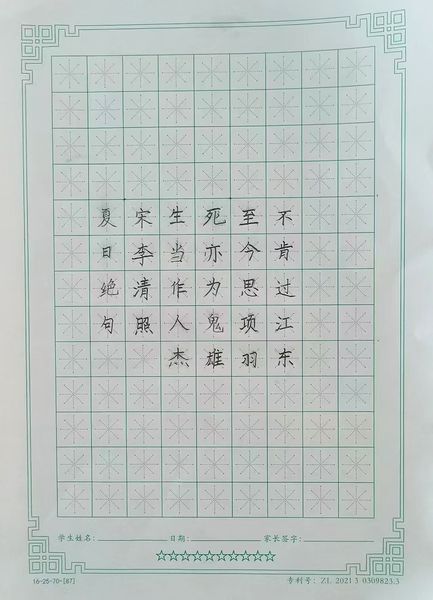 夏日绝句
宋李清照
生当作人杰
死亦为鬼雄
至今思项羽
不肯过江东
学生姓名: 日期: 家长签字:
16-25-70-[87] 专利号: ZL 2021 3 0309823.3